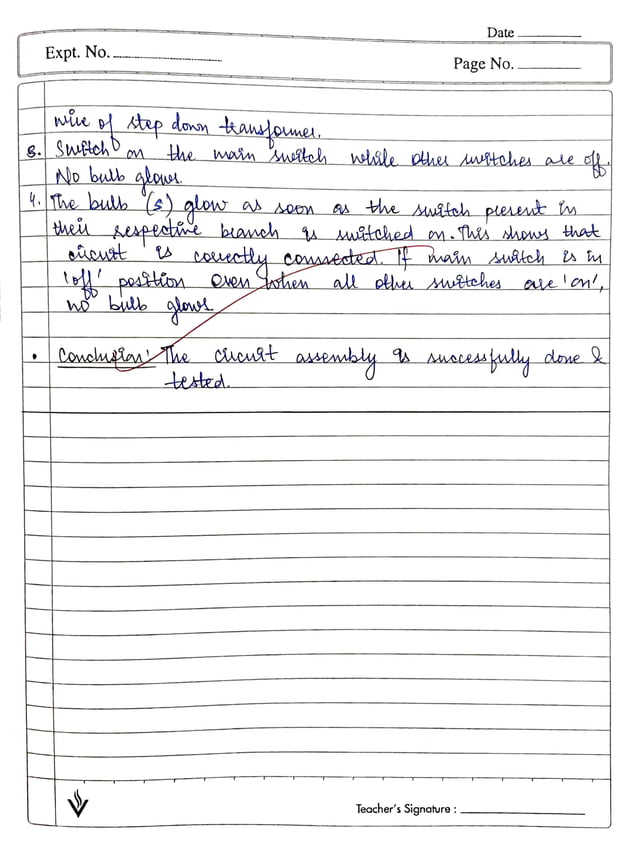 Date
Expt. No.
Page No.
wire of step down transformer.
3. Switch on the main switch while other switches are off.
No bulb glows.
4. The bulb (s) glow as soon as the switch present in
their respective branch is switched on. This shows that
circuit is correctly connected. If main switch is in
'off' position even when all other switches are 'on',
no bulb glows.
• Conclusion: The circuit assembly is successfully done &
tested.
Teacher's Signature :